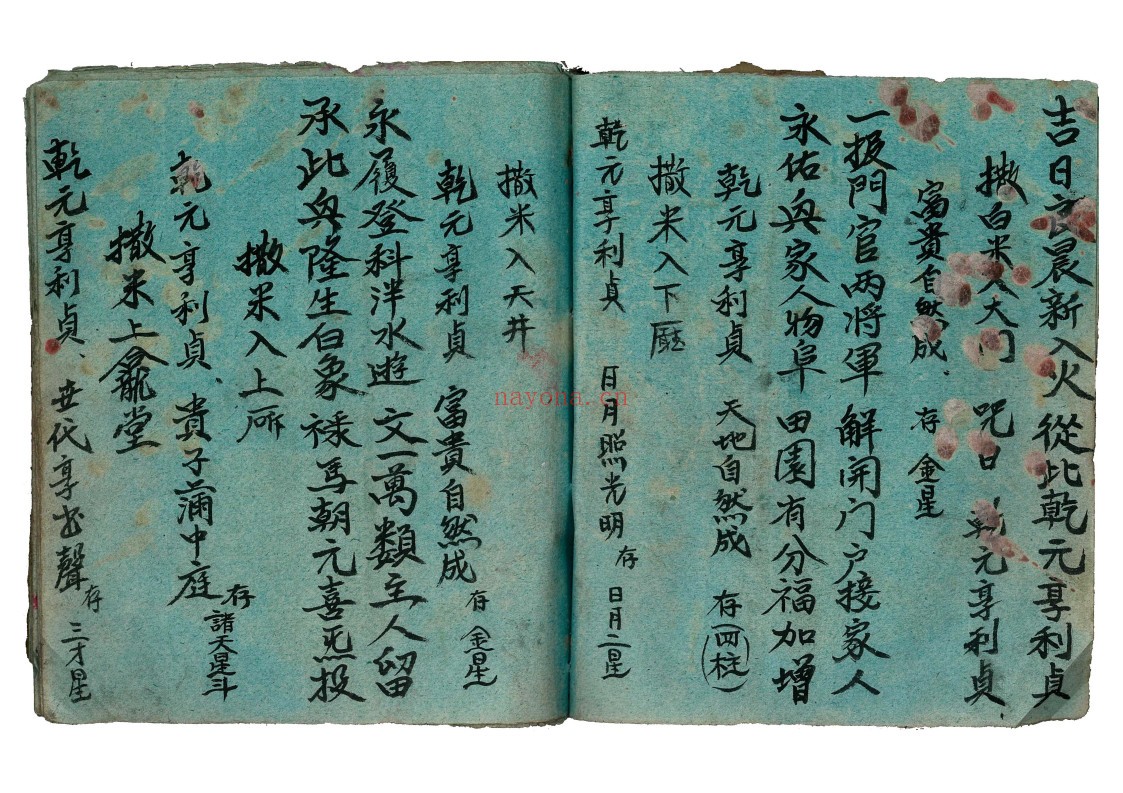 吉日良晨新入火從此乾元亨利貞
撒白米入大门 咒曰 乾元亨利貞
富貴自然成 存 金星
一扳門官两将軍 解開门户接家人
永佑與家人物阜 田園有分福加增
乾元亨利貞 天地自然成 存四柱
撒米入下廳
乾元亨利貞 日月照光明 存 日月二星
撒米入天井
乾元亨利貞 富貴自然成 存 金星
永履登科泮水遊 文一萬類主人留
承此與隆生白象 禄馬朝元喜炁投
撒米入上所
乾元亨利貞、貴子滿中庭 存 諸天星斗
撒米上龛堂
乾元亨利貞、世代享聲 存 三才星
nayona.cn